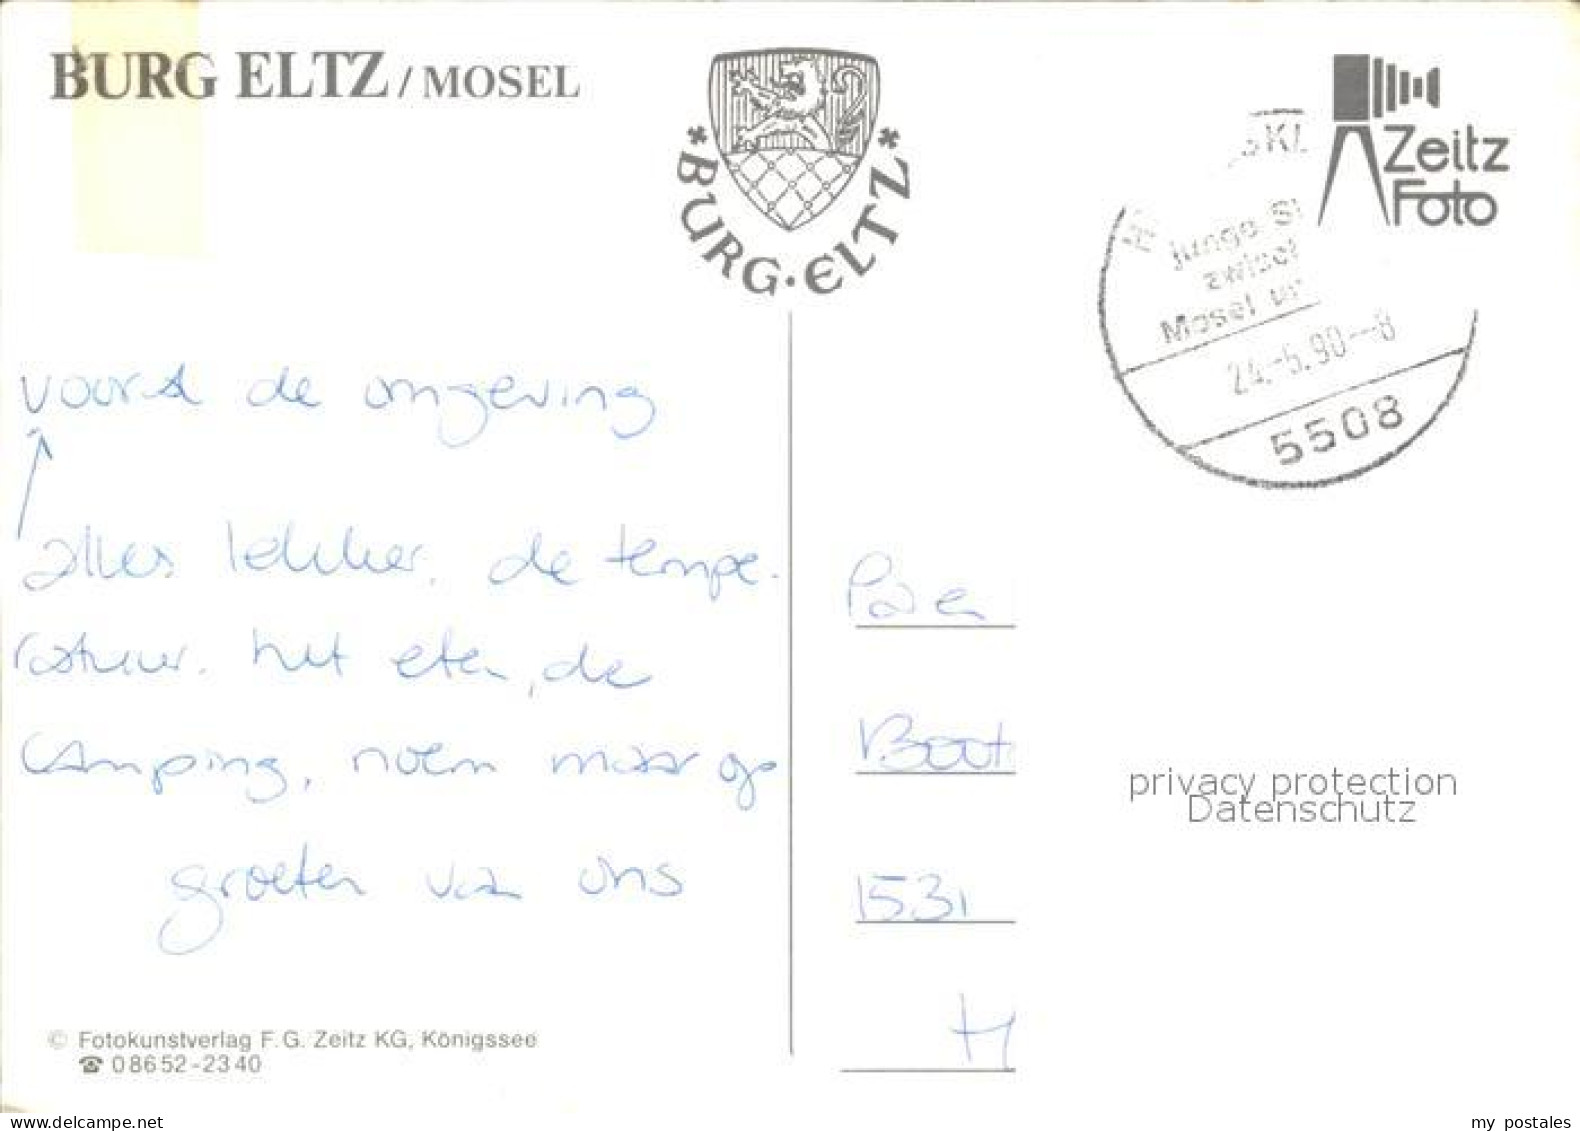 BURG ELTZ / MOSEL
BURG · ELTZ
Zeitz
Foto
junge
Mosel
24.-5.90--8
5508
de omgeving
alles lekker. de tempe-
ratuur. het eten, de
camping, noem maar op
groeten van ons
1531
privacy protection
Datenschutz
© Fotokunstverlag F. G. Zeitz KG, Königssee
☎ 08652-2340
my postales